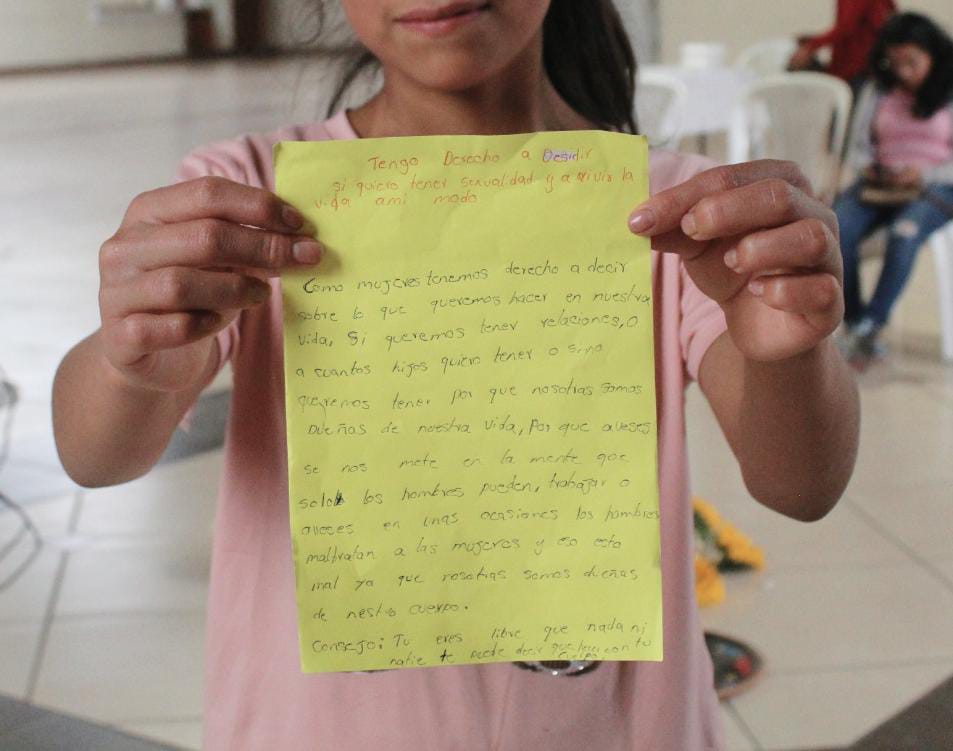 Tengo Derecho a Desidir
si quiero tener sexualidad y a vivir la
vida ami modo
Como mujeres tenemos derecho a decir
sobre lo que queremos hacer en nuestra
vida, Si queremos tener relaciones, o
a cuantos hijos quiero tener o sino
queremos tener por que nosotras somos
Dueñas de nuestra vida, Por que aveses
se nos mete en la mente que
solo los hombres pueden, trabajar o
aveses en unas ocasiones los hombres
maltratan a las mujeres y eso esta
mal ya que nosotras somos dueñas
de nestro cuerpo.
Consejo: Tu eres libre que nada ni
natie te puede decir que hacer con tu
cuerpo.